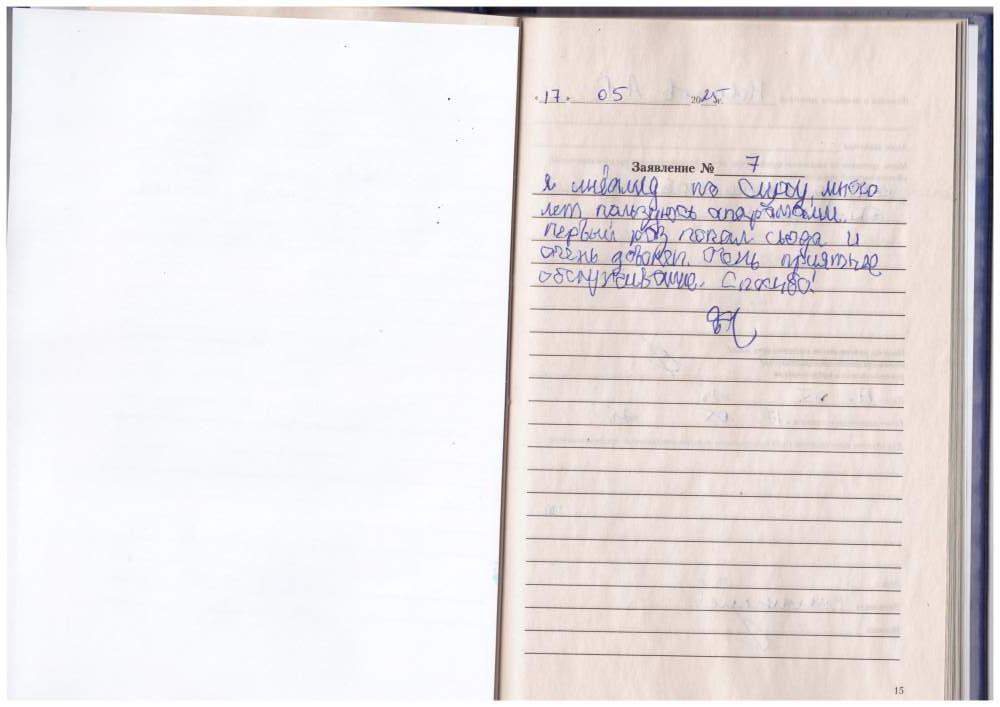 «17» 05 2025 г.
Заявление № 7
Я инвалид по слуху, много
лет пользуюсь апаратами.
Первый раз попал сюда и
очень доволен. Очень приятное
обслуживание. Спасибо!
15